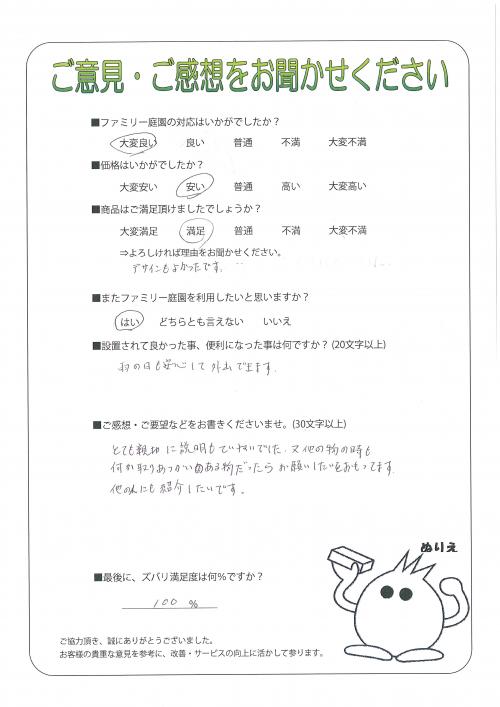 ご意見・ご感想をお聞かせください
■ファミリー庭園の対応はいかがでしたか?
大変良い 良い 普通 不満 大変不満
■価格はいかがでしたか?
大変安い 安い 普通 高い 大変高い
■商品はご満足頂けましたでしょうか?
大変満足 満足 普通 不満 大変不満
⇒よろしければ理由をお聞かせください。
デザインもよかったです。
■またファミリー庭園を利用したいと思いますか?
はい どちらとも言えない いいえ
■設置されて良かった事、便利になった事は何ですか? (20文字以上)
雨の日も安心して外出できます。
■ご感想・ご要望などをお書きくださいませ。(30文字以上)
とても親切に説明もていねいでした。又他の物の時も
何か取りあつかいのある物だったらお願いしたいとおもってます。
他の人にも紹介したいです。
ぬりえ
■最後に、ズバリ満足度は何%ですか?
100 %
ご協力頂き、誠にありがとうございました。
お客様の貴重な意見を参考に、改善・サービスの向上に活かして参ります。